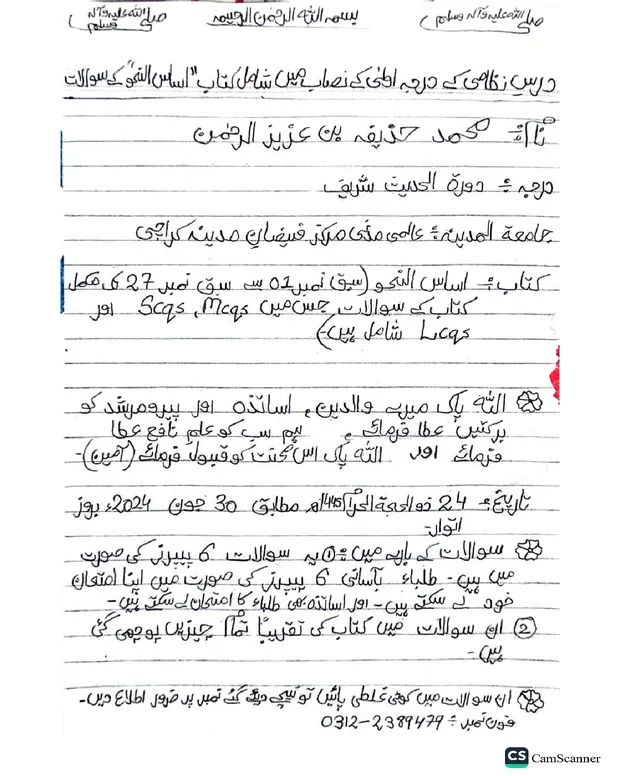 صلی اللہ علیہ وآلہ وسلم بسم اللہ الرحمن الرحیم صلی اللہ علیہ وآلہ وسلم
درسِ نظامی کے درجہ اولیٰ کے نصاب میں شامل کتاب "اساس النحو" کے سوالات
نام:- محمد حذیفہ بن عزیز الرحمٰن
درجہ:- دورۃ الحدیث شریف
جامعۃ المدینہ:- عالمی مدنی مرکز فیضانِ مدینہ کراچی
کتاب:- اساس النحو (سبق نمبر 01 سے سبق نمبر 27 تک مکمل
کتاب کے سوالات جس میں Scqs, Mcqs اور
Lcqs شامل ہیں)
اللہ پاک میرے والدین، اساتذہ اور پیرو مرشد کو
برکتیں عطا فرمائے، ہم سب کو علمِ نافع عطا
فرمائے اور اللہ پاک اس محنت کو قبول فرمائے (آمین)۔
تاریخ:- 24 ذوالحجۃ الحرام 1445ھ مطابق 30 جون 2024ء بروز
اتوار۔
سوالات کے بارے میں:- ① یہ سوالات 6 پیپرز کی صورت
میں ہیں۔ طلباء بآسانی 6 پیپرز کی صورت میں اپنا امتحان
خود لے سکتے ہیں۔ اور اساتذہ بھی طلباء کا امتحان لے سکتے ہیں۔
② ان سوالات میں کتاب کی تقریباً تمام چیزیں پوچھی گئی
ہیں۔
ان سوالات میں کوئی غلطی پائیں تو نیچے دیئے گئے نمبر پر ضرور اطلاع دیں۔
فون نمبر:- 0312-2389479
CS CamScanner